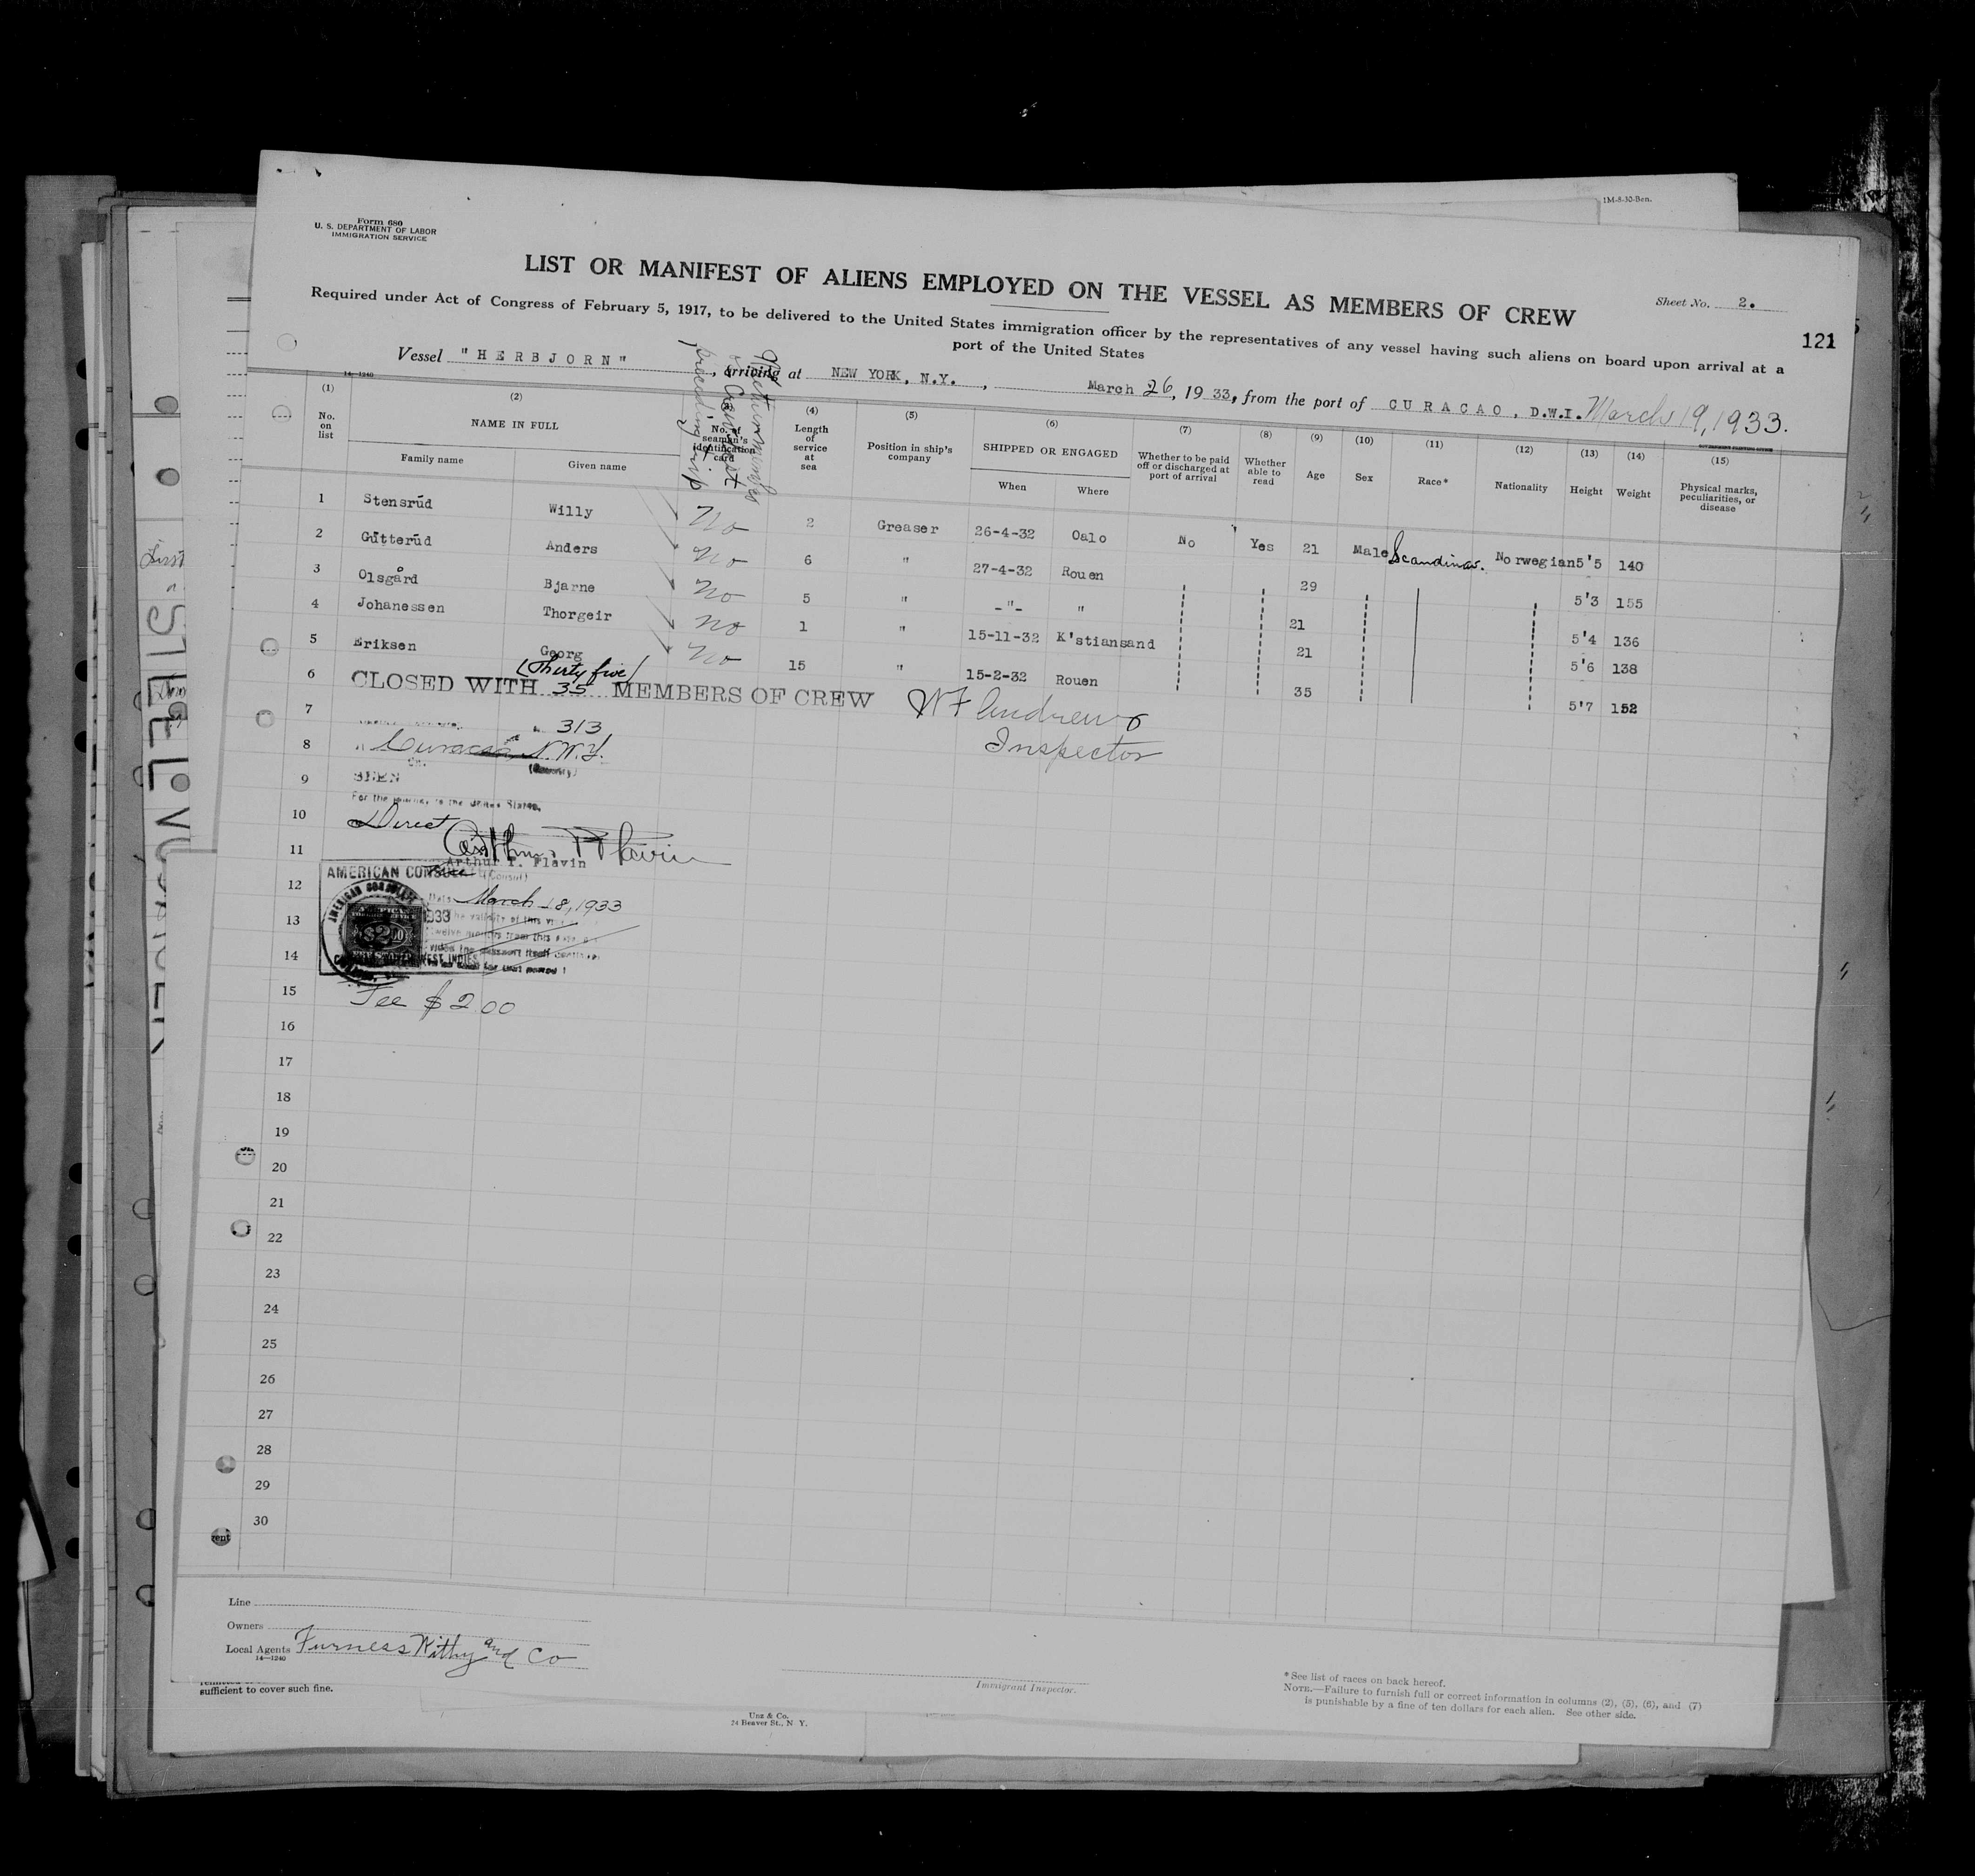 1M-8-30-Ben.
Form 680
U. S. DEPARTMENT OF LABOR
IMMIGRATION SERVICE
LIST OR MANIFEST OF ALIENS EMPLOYED ON THE VESSEL AS MEMBERS OF CREW
Sheet No. 2.
121
Required under Act of Congress of February 5, 1917, to be delivered to the United States immigration officer by the representatives of any vessel having such aliens on board upon arrival at a
port of the United States
Vessel "HERBJORN", arriving at NEW YORK, N.Y., March 26, 1933, from the port of CURACAO, D.W.I. March 19, 1933.
14—1240
(1) (2) (4) (5) (6) (7) (8) (9) (10) (11) (12) (13) (14) (15)
No. on list
NAME IN FULL
Family name
Given name
No. of seaman's identification card
preceding trip
Length of service at sea
Position in ship's company
SHIPPED OR ENGAGED
When
Where
Whether to be paid off or discharged at port of arrival
Whether able to read
Age
Sex
Race*
Nationality
Height
Weight
Physical marks, peculiarities, or disease
1 Stensrúd Willy No 2 Greaser 26-4-32 Oalo No Yes 21 Male Scandinav. Norwegian 5'5 140
2 Gútterúd Anders No 6 " 27-4-32 Rouen 29 5'3 155
3 Olsgård Bjarne No 5 " -"- " 21 5'4 136
4 Johanessen Thorgeir No 1 " 15-11-32 K'stiansand 21 5'6 138
5 Eriksen Georg No 15 " 15-2-32 Rouen 35 5'7 152
(Thirty five)
6 CLOSED WITH 35 MEMBERS OF CREW
W F Andrews
Inspector
7 313
8 Curacao, N.W.I.
(Country)
9 SEEN
For the journey to the United States.
10 Direct
11 Arthur T. Flavin
(Consul)
12 AMERICAN CONSUL
Date March 18, 1933
13 The validity of this
14
$2.00
15 Fee $2.00
16
17
18
19
20
21
22
23
24
25
26
27
28
29
30
Line
Owners
Local Agents Furness Withy and Co
14—1240
Immigrant Inspector.
*See list of races on back hereof.
NOTE.—Failure to furnish full or correct information in columns (2), (5), (6), and (7)
is punishable by a fine of ten dollars for each alien. See other side.
sufficient to cover such fine.
Unz & Co.
24 Beaver St., N. Y.